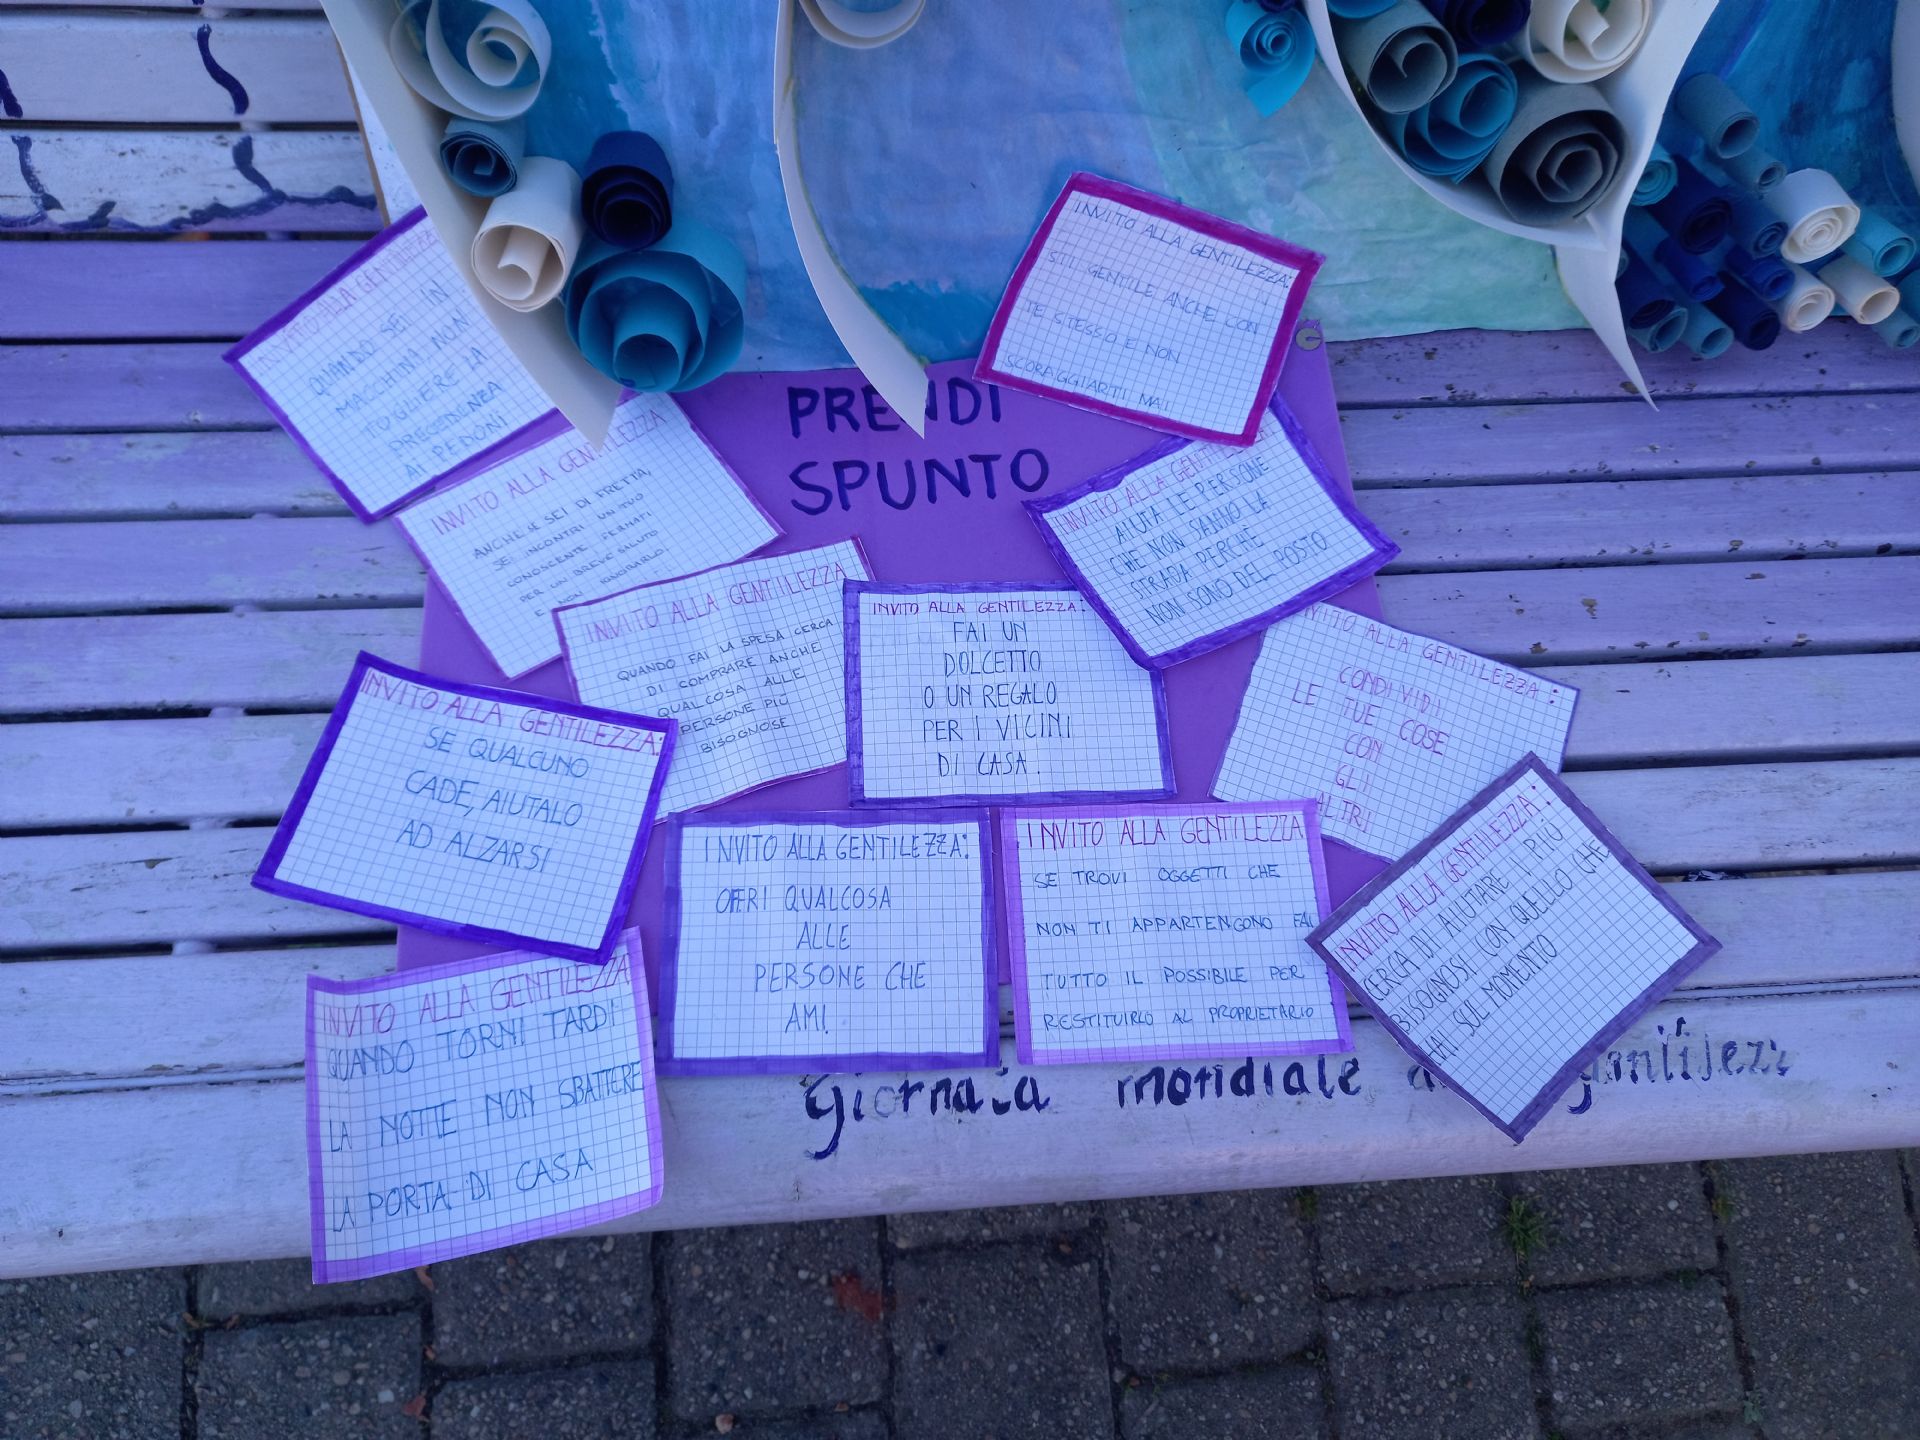 PRENDI
SPUNTO
INVITO ALLA GENTILEZZA:
STI GENTILE ANCHE CON
TE STESSO E NON
SCORAGGIARTI MAI
INVITO ALLA GENTILEZZA
QUANDO SEI IN
MACCHINA NON
TOGLIERE LA
PRECEDENZA
AI PEDONI
INVITO ALLA GENTILEZZA
ANCHE SE SEI DI FRETTA,
SE INCONTRI UN TUO
CONOSCENTE FERMATI
PER UN BREVE SALUTO
E NON IGNORARLO.
INVITO ALLA GENTILEZZA
AIUTA LE PERSONE
CHE NON SANNO LA
STRADA PERCHÈ
NON SONO DEL POSTO
INVITO ALLA GENTILEZZA
QUANDO FAI LA SPESA CERCA
DI COMPRARE ANCHE
QUALCOSA ALLE
PERSONE PIÙ
BISOGNOSE
INVITO ALLA GENTILEZZA:
FAI UN
DOLCETTO
O UN REGALO
PER I VICINI
DI CASA.
INVITO ALLA GENTILEZZA:
CONDIVIDI
LE TUE COSE
CON
GLI
ALTRI
INVITO ALLA GENTILEZZA:
SE QUALCUNO
CADE, AIUTALO
AD ALZARSI
INVITO ALLA GENTILEZZA:
OFFRI QUALCOSA
ALLE
PERSONE CHE
AMI.
INVITO ALLA GENTILEZZA
SE TROVI OGGETTI CHE
NON TI APPARTENGONO FAI
TUTTO IL POSSIBILE PER
RESTITUIRLO AL PROPRIETARIO
INVITO ALLA GENTILEZZA:
CERCA DI AIUTARE I PIÙ
BISOGNOSI CON QUELLO CHE
HAI SUL MOMENTO
INVITO ALLA GENTILEZZA
QUANDO TORNI TARDI
LA NOTTE NON SBATTERE
LA PORTA DI CASA
Giornata mondiale